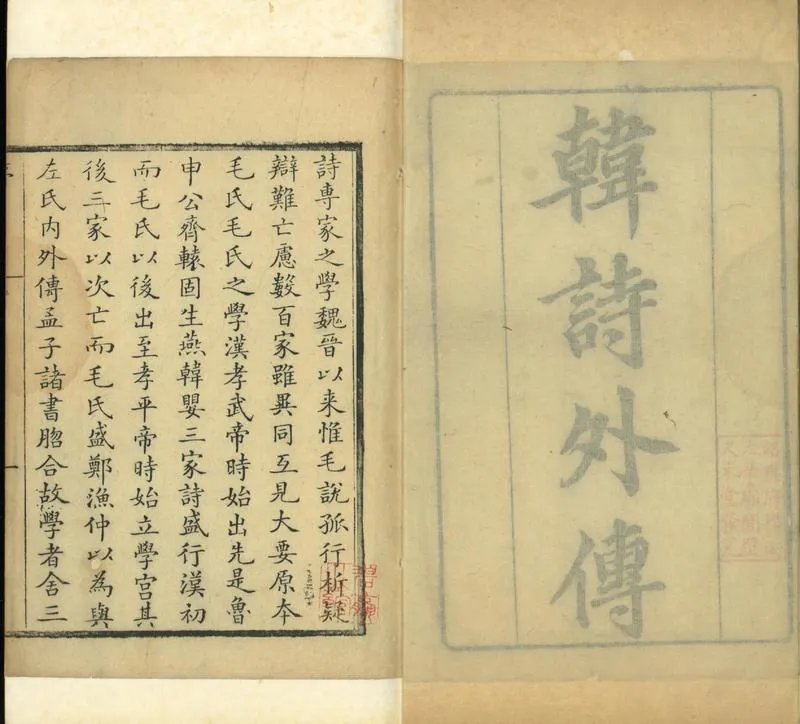 韓詩外傳
詩專家之學魏晉以来惟毛説孤行析疑
辯難亡慮數百家雖異同互見大要原本
毛氏毛氏之學漢孝武帝時始出先是魯
申公齊轅固生燕韓嬰三家詩盛行漢初
而毛氏以後出至孝平帝時始立學官其
後三家以次亡而毛氏盛鄭漁仲以為與
左氏内外傳孟子諸書脗合故學者舍三